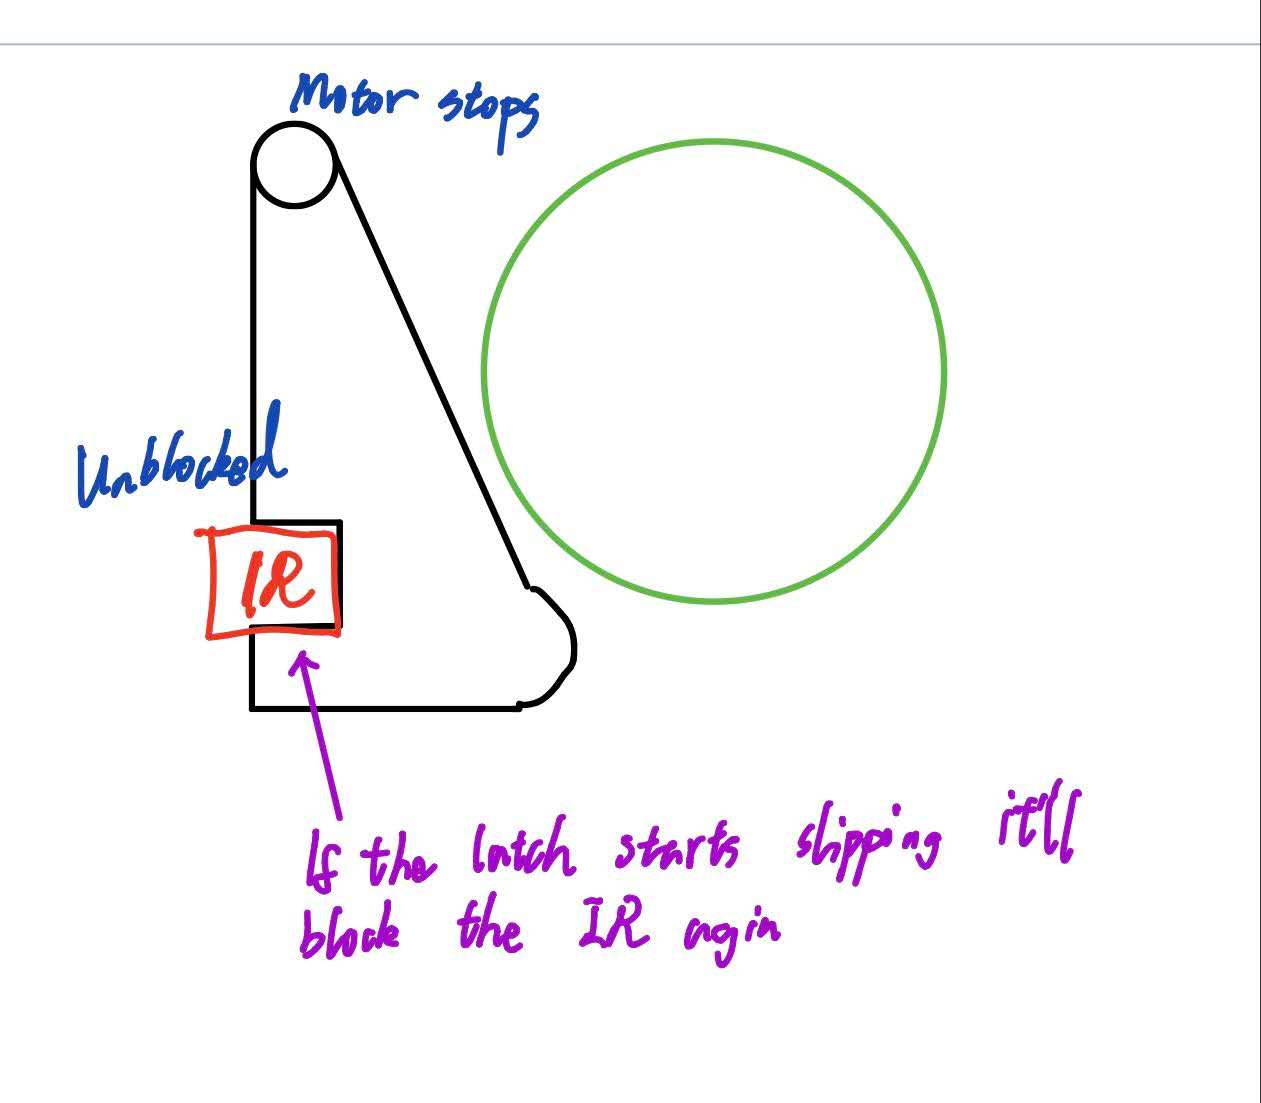 Motor stops
Unblocked
IR
If the latch starts shipping it'll
block the IR agin